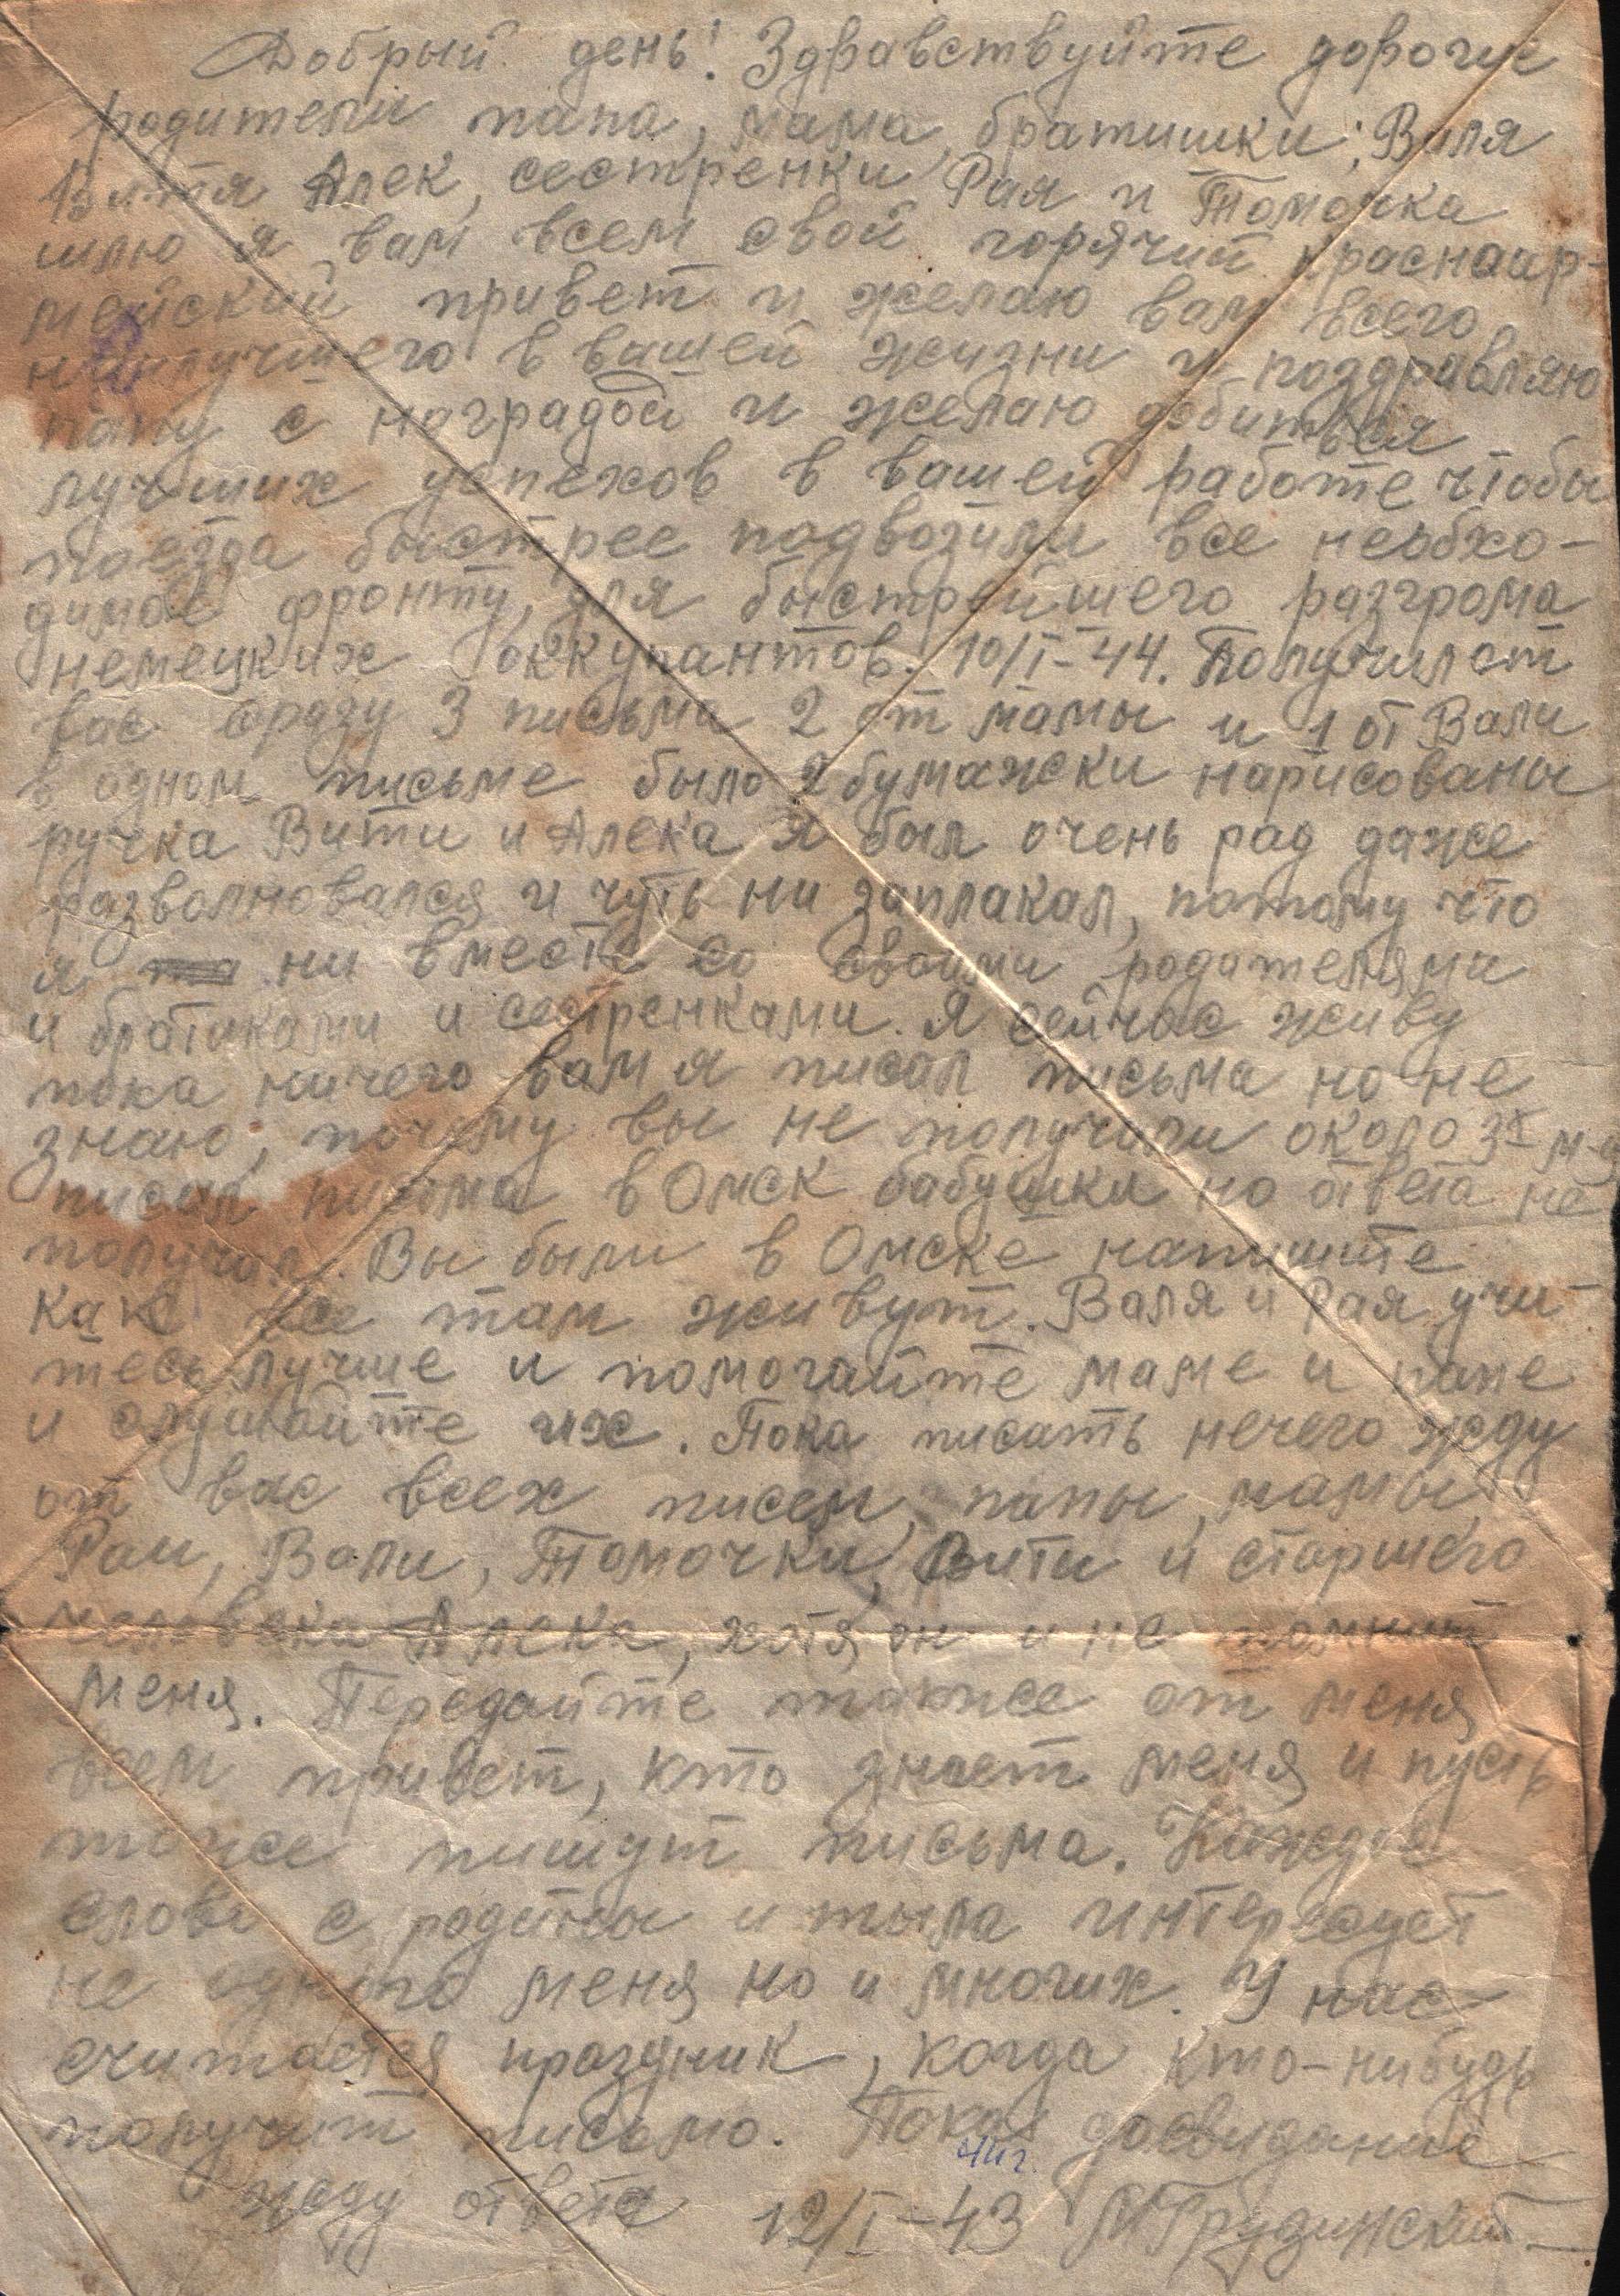 Добрый день! Здравствуйте дорогие
родители папа, мама, братишки; Валя
Витя Алек, сестренки Рая и Томочка
шлю я вам всем свой горячий краснаар-
мейский привет и желаю вам всего
наилучшего в вашей жизни и поздравляю
папу с наградой и желаю добиться
лучших успехов в вашей работе чтобы
поезда быстрее подвозили все необхо-
димое фронту, для быстрейшего разгрома
немецких оккупантов. 10/I-44. Получил от
вас сразу 3 письма 2 от мамы и 1 от Вали
в одном письме было 2 бумажски нарисованы
ручка Вити и Алека я был очень рад даже
разволновался и чуть ни заплакал, потому что
я ни вместе со своими родителями
и братиками и сестренками. Я сейчас живу
пока ничего вам я писал письма но не
знаю, почему вы не получали около 3х м-ц
писал письма в Омск бабушки но ответа не
получал. Вы были в Омске напишите
как все там живут. Валя и Рая учи-
тесь лучше и помогайте маме и папе
и слушайте их. Пока писать нечего жду
от вас всех писем, папы, мамы,
Раи, Вали, Томочки, Вити и старшего
человека Алека, хотя он и не помнит
меня. Передайте также от меня
всем привет, кто знает меня и пусть
тоже пишут письма. Каждое
слово с родины и тыла интересует
не одного меня но и многих. У нас
считается праздник, когда кто-нибудь
получит письмо. Пока досвидание
44г.
жду ответа 12/I-43 МГрудинский